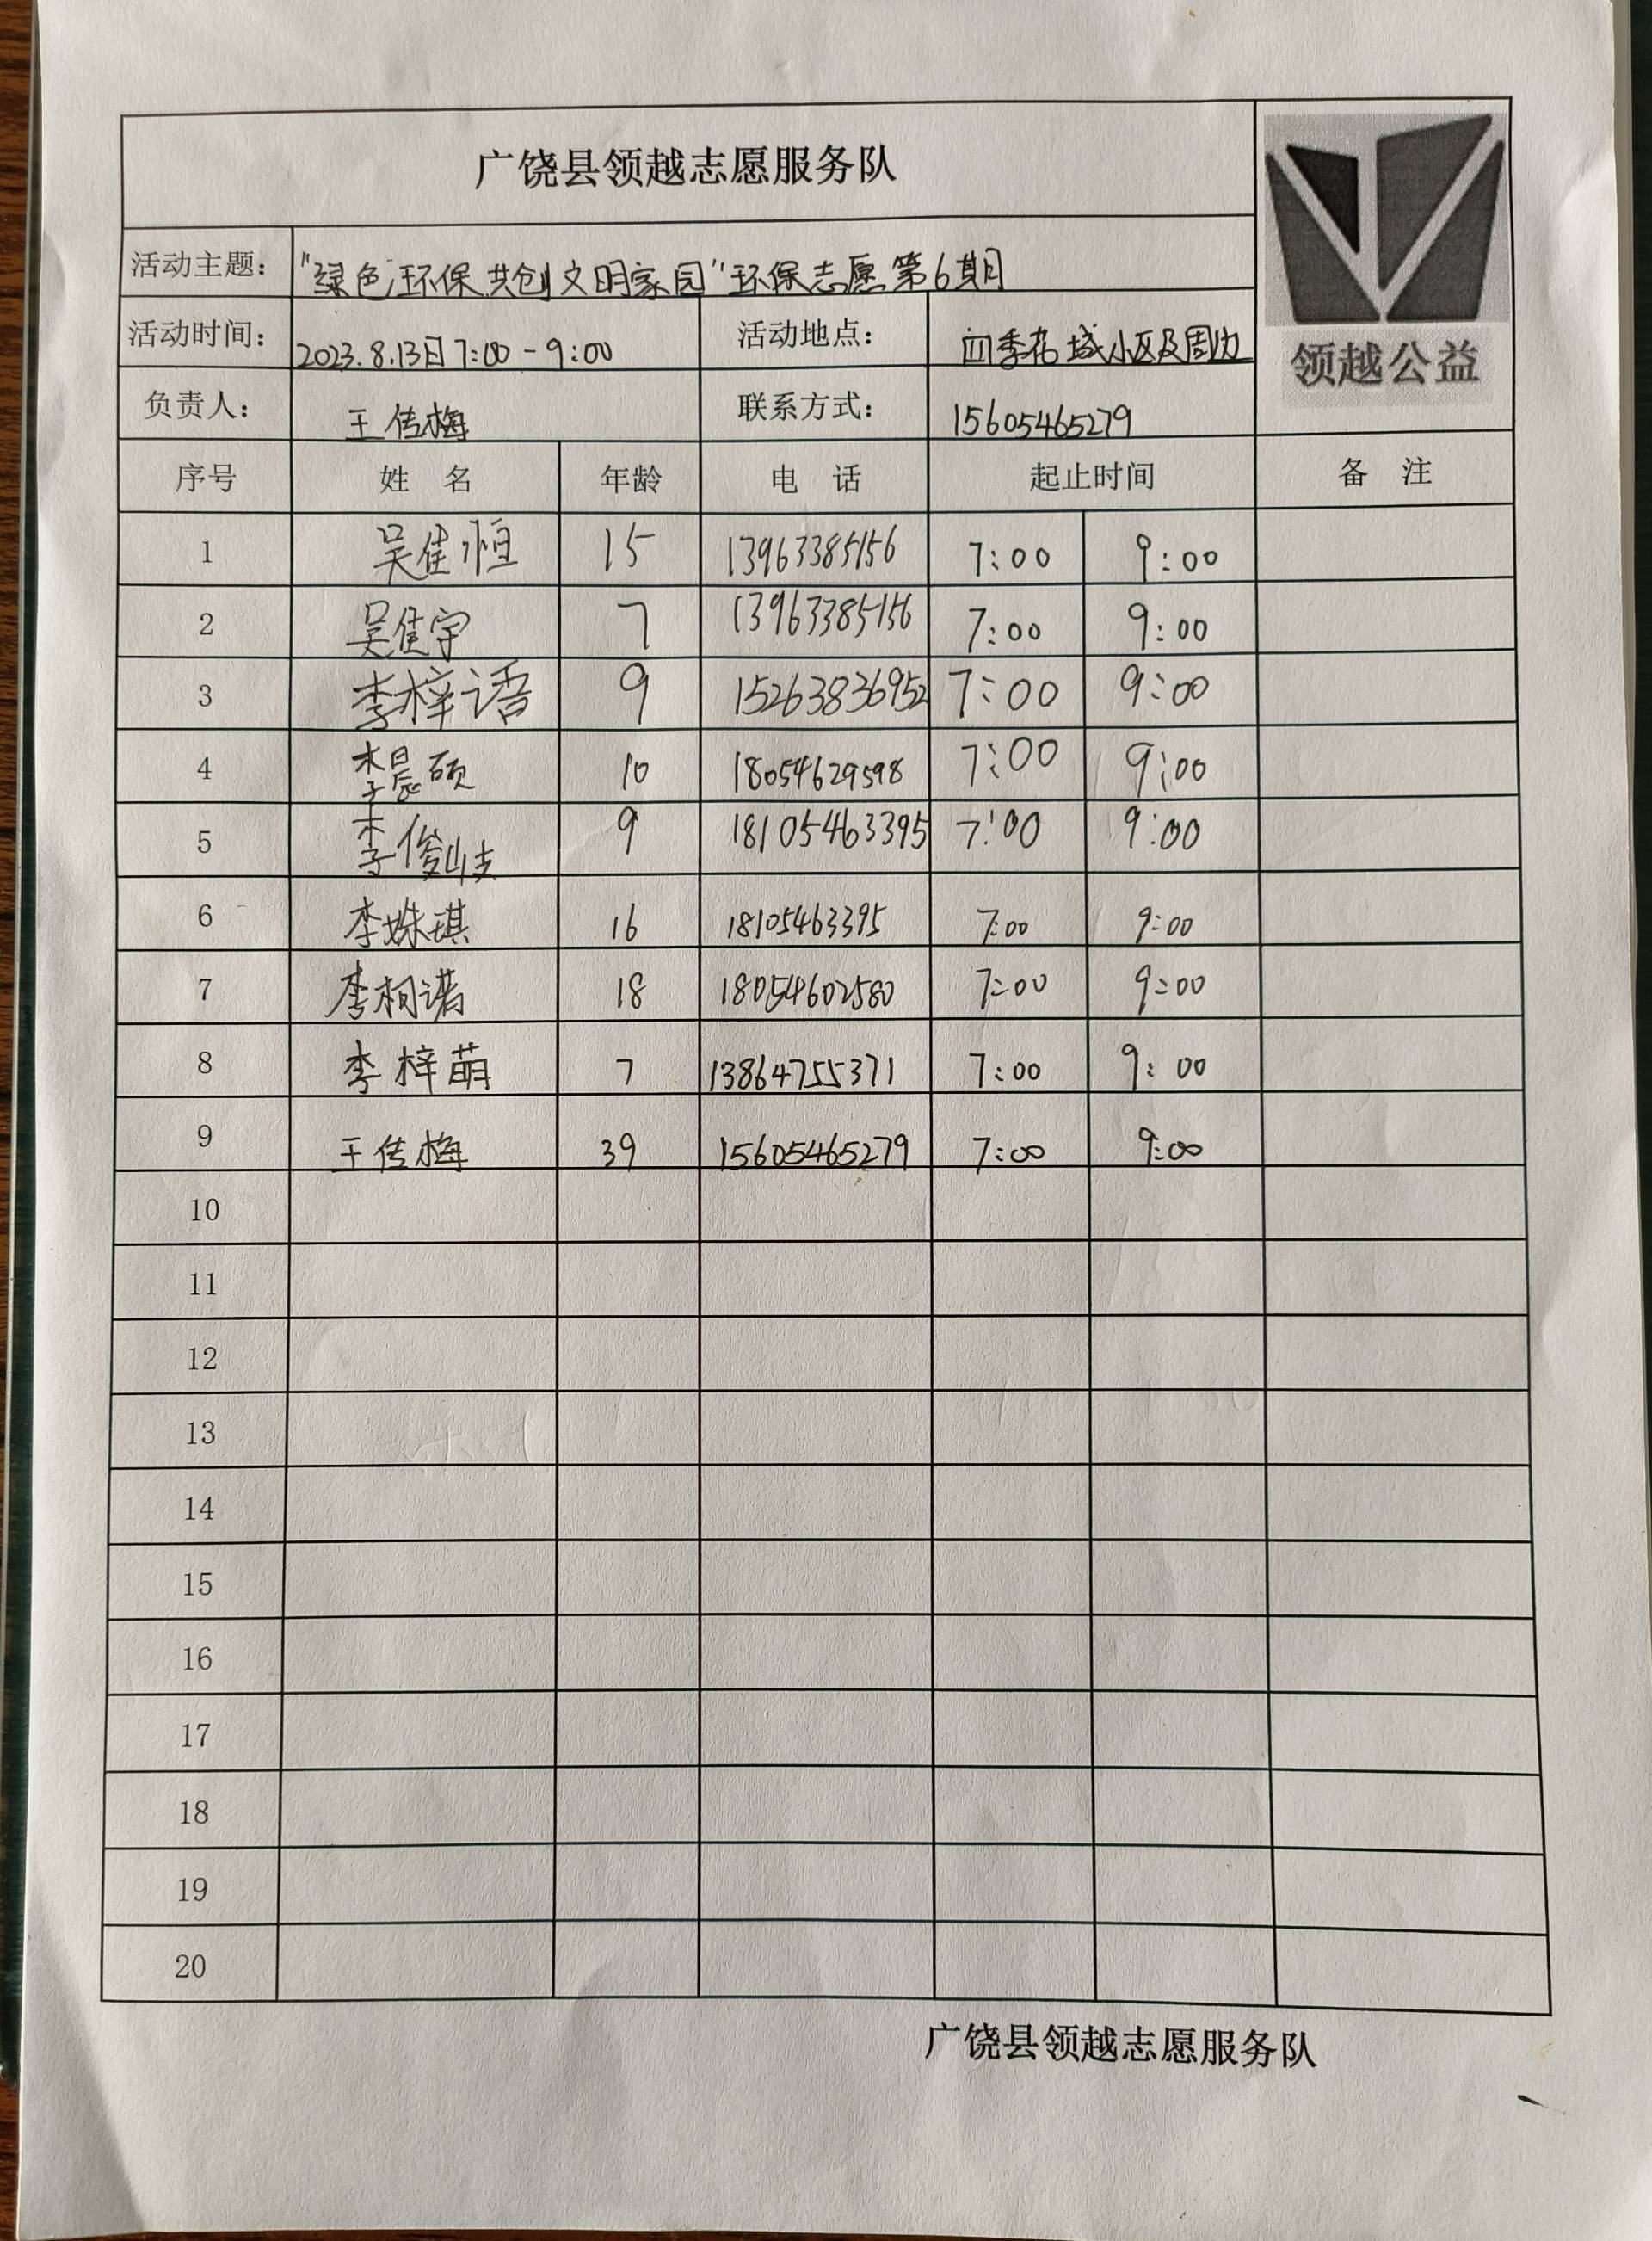 广饶县领越志愿服务队
领越公益
活动主题: "绿色环保 共创文明家园"环保志愿第6期
活动时间: 2023.8.13日7:00-9:00 活动地点: 四季花城小区及周边
负责人: 王传梅 联系方式: 15605465279
序号 姓 名 年龄 电 话 起止时间 备 注
1 吴佳恒 15 13963385156 7:00 9:00
2 吴佳宇 7 13963385156 7:00 9:00
3 李梓语 9 15263836952 7:00 9:00
4 李晨硕 10 18054629598 7:00 9:00
5 李俊岐 9 18105463395 7:00 9:00
6 李姝琪 16 18105463395 7:00 9:00
7 李柯诺 18 18054602580 7:00 9:00
8 李梓萌 7 13864755371 7:00 9:00
9 王传梅 39 15605465279 7:00 9:00
10
11
12
13
14
15
16
17
18
19
20
广饶县领越志愿服务队